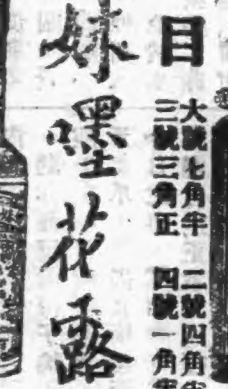 目
大號七角半 二號四角
三號三角正 四號一角
妹嚜花露